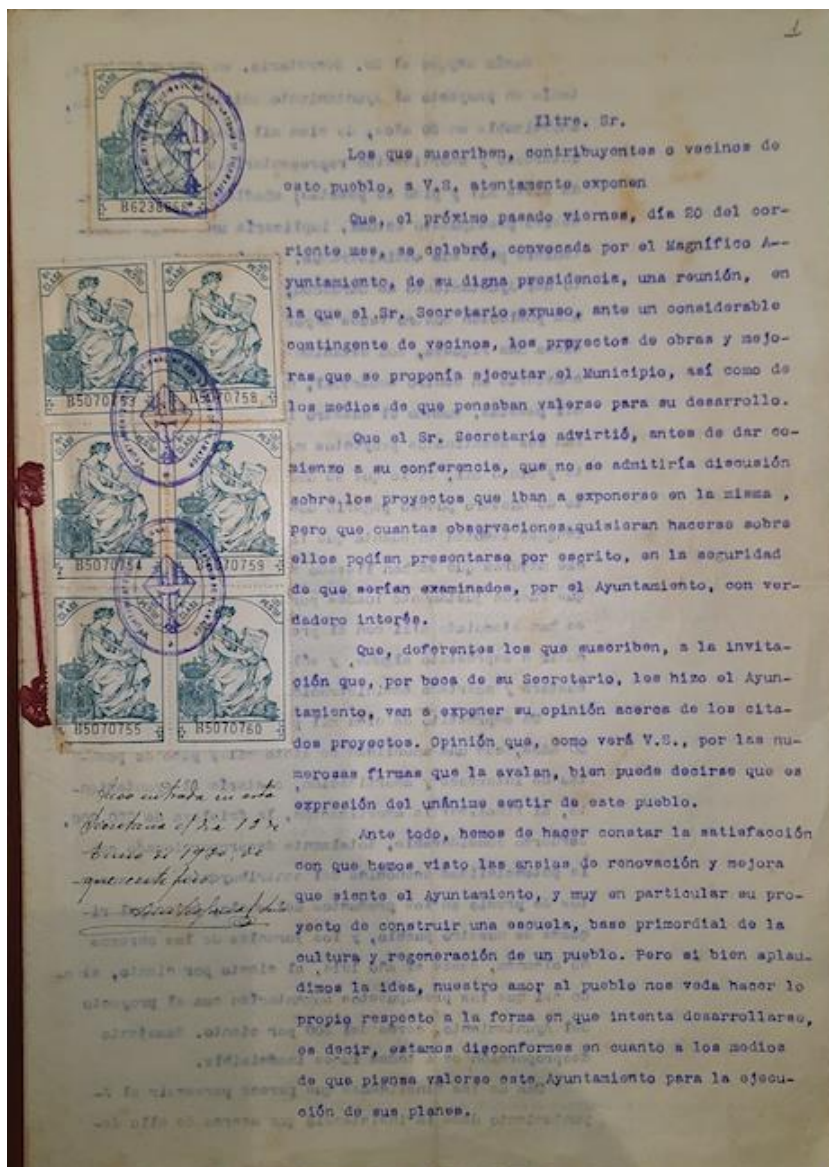 1
Iltre. Sr.
Los que suscriben, contribuyentes o vecinos de
esto pueblo, a V.S. atentamente exponen
Que, el próximo pasado viernes, día 20 del cor-
riente mes, se celebró, convocada por el Magnífico A--
yuntamiento, de su digna presidencia, una reunión, en
la que el Sr. Secretario expuso, ante un considerable
contingente de vecinos, los proyectos de obras y mejo-
ras que se proponía ejecutar el Municipio, así como de
los medios de que pensaban valerse para su desarrollo.
Que el Sr. Secretario advirtió, antes de dar co-
mienzo a su conferencia, que no se admitiría discusión
sobre los proyectos que iban a exponerse en la misma ,
pero que cuantas observaciones quisieran hacerse sobre
ellos podían presentarse por escrito, en la seguridad
de que serían examinados, por el Ayuntamiento, con ver-
dadero interés.
Que, deferentes los que suscriben, a la invita-
ción que, por boca de su Secretario, les hizo el Ayun-
tamiento, van a exponer su opinión acerca de los cita-
dos proyectos. Opinión que, como verá V.S., por las nu-
merosas firmas que la avalan, bien puede decirse que es
expresión del unánime sentir de este pueblo.
Ante todo, hemos de hacer constar la satisfacción
con que hemos visto las ansias de renovación y mejora
que siente el Ayuntamiento, y muy en particular su pro-
yecto de construir una escuela, base primordial de la
cultura y regeneración de un pueblo. Pero si bien aplau-
dimos la idea, nuestro amor al pueblo nos veda hacer lo
propio respecto a la forma en que intenta desarrollarse,
es decir, estamos disconformes en cuanto a los medios
de que piensa valerse este Ayuntamiento para la ejecu-
ción de sus planes.
8ª CLASE
B6238668
8ª CLASE
B5070753
B5070758
B5070754
B5070759
B5070755
B5070760
entrada en esta
Secretaria el día 13 de
Enero de 1930, de